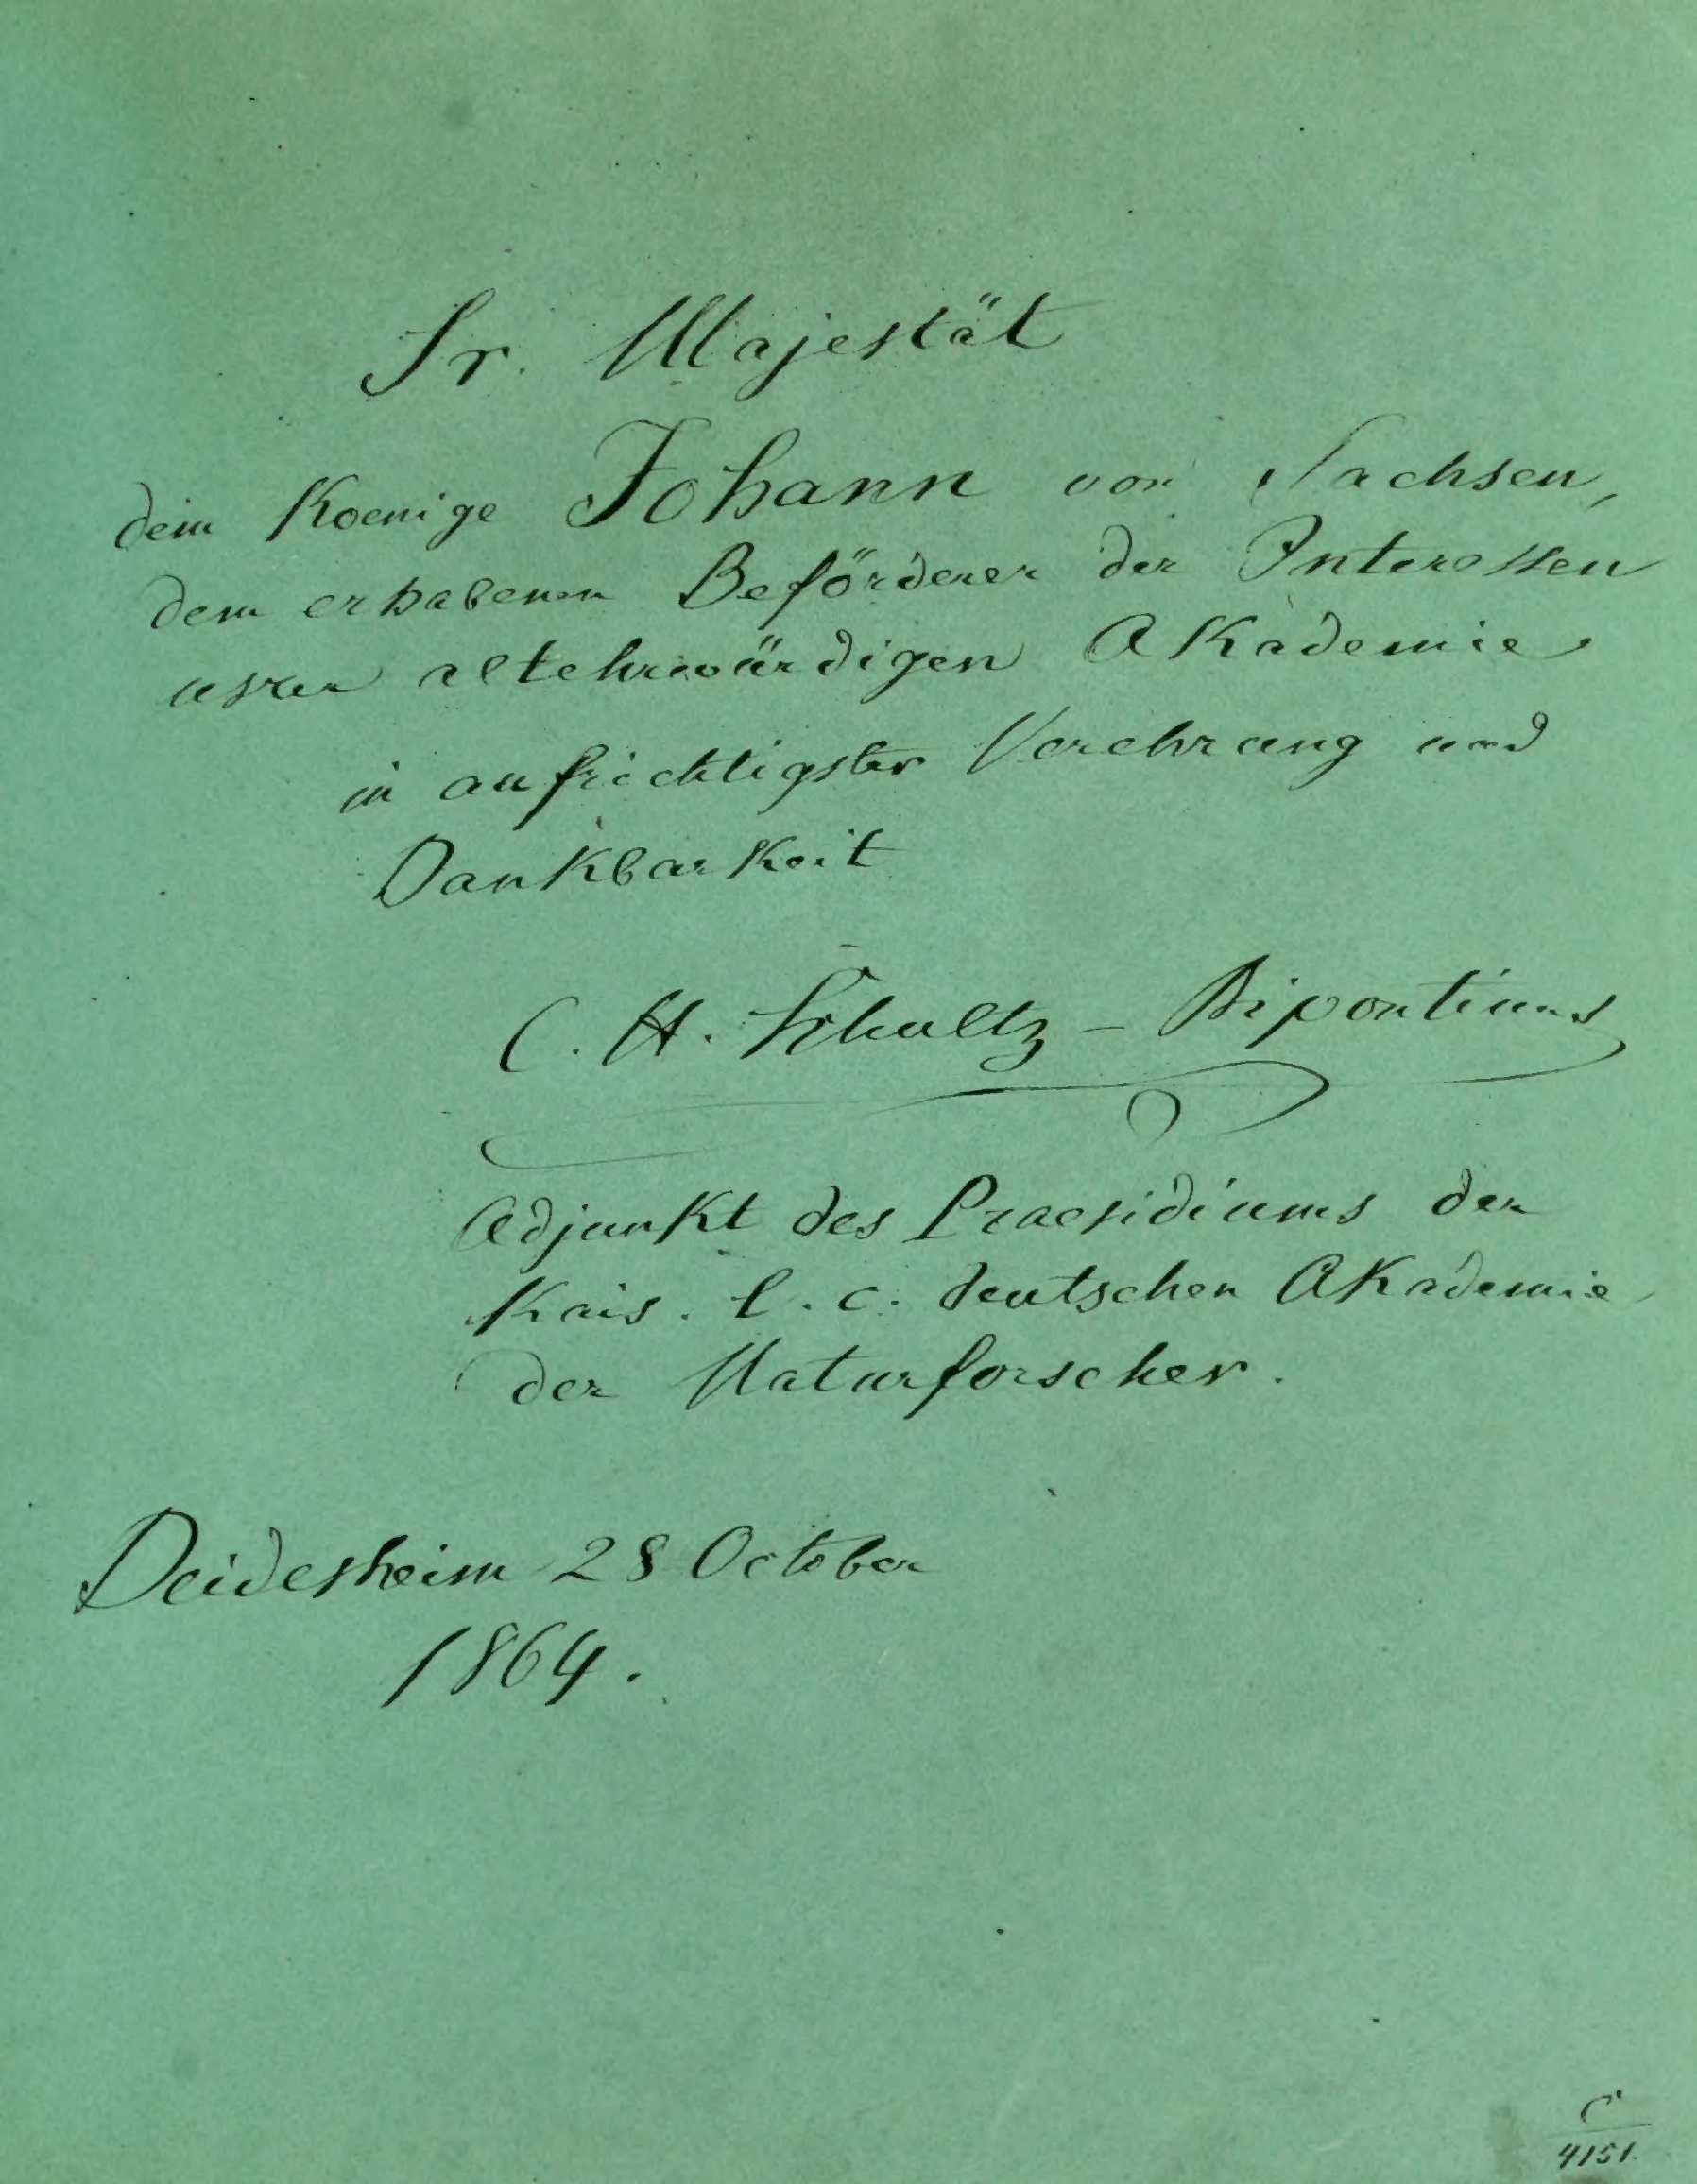 Sr. Majestät
dem Koenige Johann von Sachsen,
dem erhabenen Beförderer der Interessen
unsrer altehrwürdigen Akademie
in aufrichtigster Verehrung und
Dankbarkeit
C. H. Schultz - Bipontinus
Adjunkt des Praesidiums der
Kais. l. c. deutschen Akademie
der Naturforscher.
Deidesheim 28 October
1864.
C
4151.